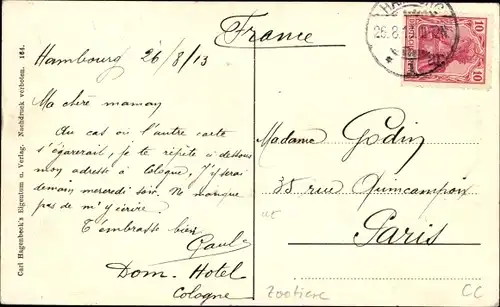 France
HAMBURG
26.8.13
10
10
Hambourg 26/8/13
Ma chère maman
Au cas où l'autre carte
s'égarerait, je te répète ci dessous
mon adresse à Cologne. J'y serai
demain mercredi soir. Ne manque
pas de m'y écrire.
T'embrasse bien
Paul
Dom-Hotel
Cologne
Madame Godin
35 rue Quincampoix
Paris
Zootiere
CC
Carl Hagenbeck's Eigentum u. Verlag. Nachdruck verboten. 164.